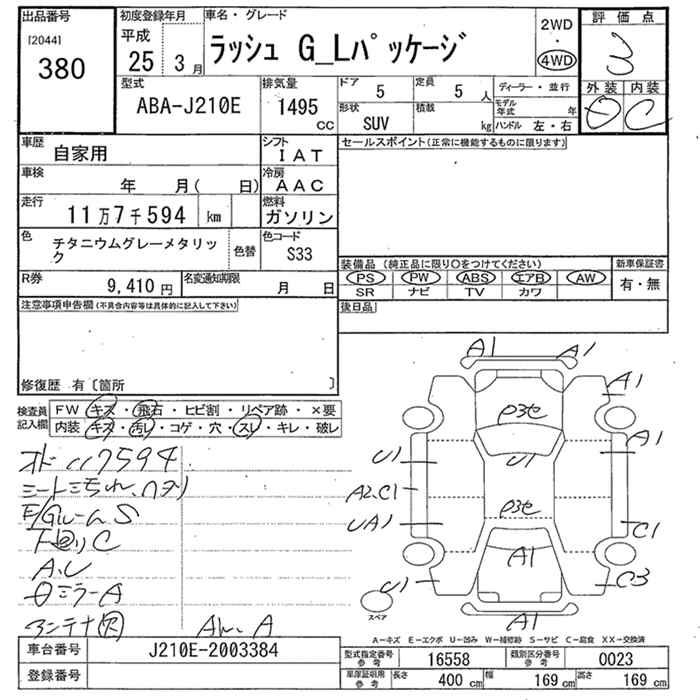 出品番号
[2044]
380
初度登録年月
平成
25 3 月
車名・グレード
ラッシュ G_Lパッケージ
2WD
・
4WD
評価点
3
外装 内装
D C
型式
ABA-J210E
排気量
1495
CC
ドア 5
定員 5 人
形状
SUV
積載
kg
ディーラー・並行
モデル年式 年
ハンドル 左・右
車歴
自家用
シフト
IAT
車検
年 月( 日)
冷房
AAC
走行
11万7千594 km
燃料
ガソリン
色
チタニウムグレーメタリック
色替
色コード
S33
R券
9,410 円
名変通知期限
月 日
セールスポイント(正常に機能するものに限ります)
装備品(純正品に限り○をつけてください)
PS PW ABS エアB AW
SR ナビ TV カワ
新車保証書
有・無
後日品
注意事項申告欄(不具合内容等は具体的に記入して下さい)
修復歴 有〔箇所 〕
検査員記入欄
FW キズ・飛石・ヒビ割・リペア跡・×要
内装 キズ・汚れ・コゲ・穴・スレ・キレ・破レ
117594
シート汚れ、ヘタリ
E/GルームS
A.U
ミラーA
アンテナ
A1 A1
A1
A1
U1
U1
A2.C1
UA1
C1
A1
U1
C3
スペア
A1
A―キズ E―エクボ U―凹み W―補修跡 S―サビ C―腐食 XX―交換済
車台番号
J210E-2003384
登録番号
型式指定番号
参考
16558
類別区分番号
参考
0023
車庫証明用
参考
長さ 400 cm
幅 169 cm
高さ 169 cm